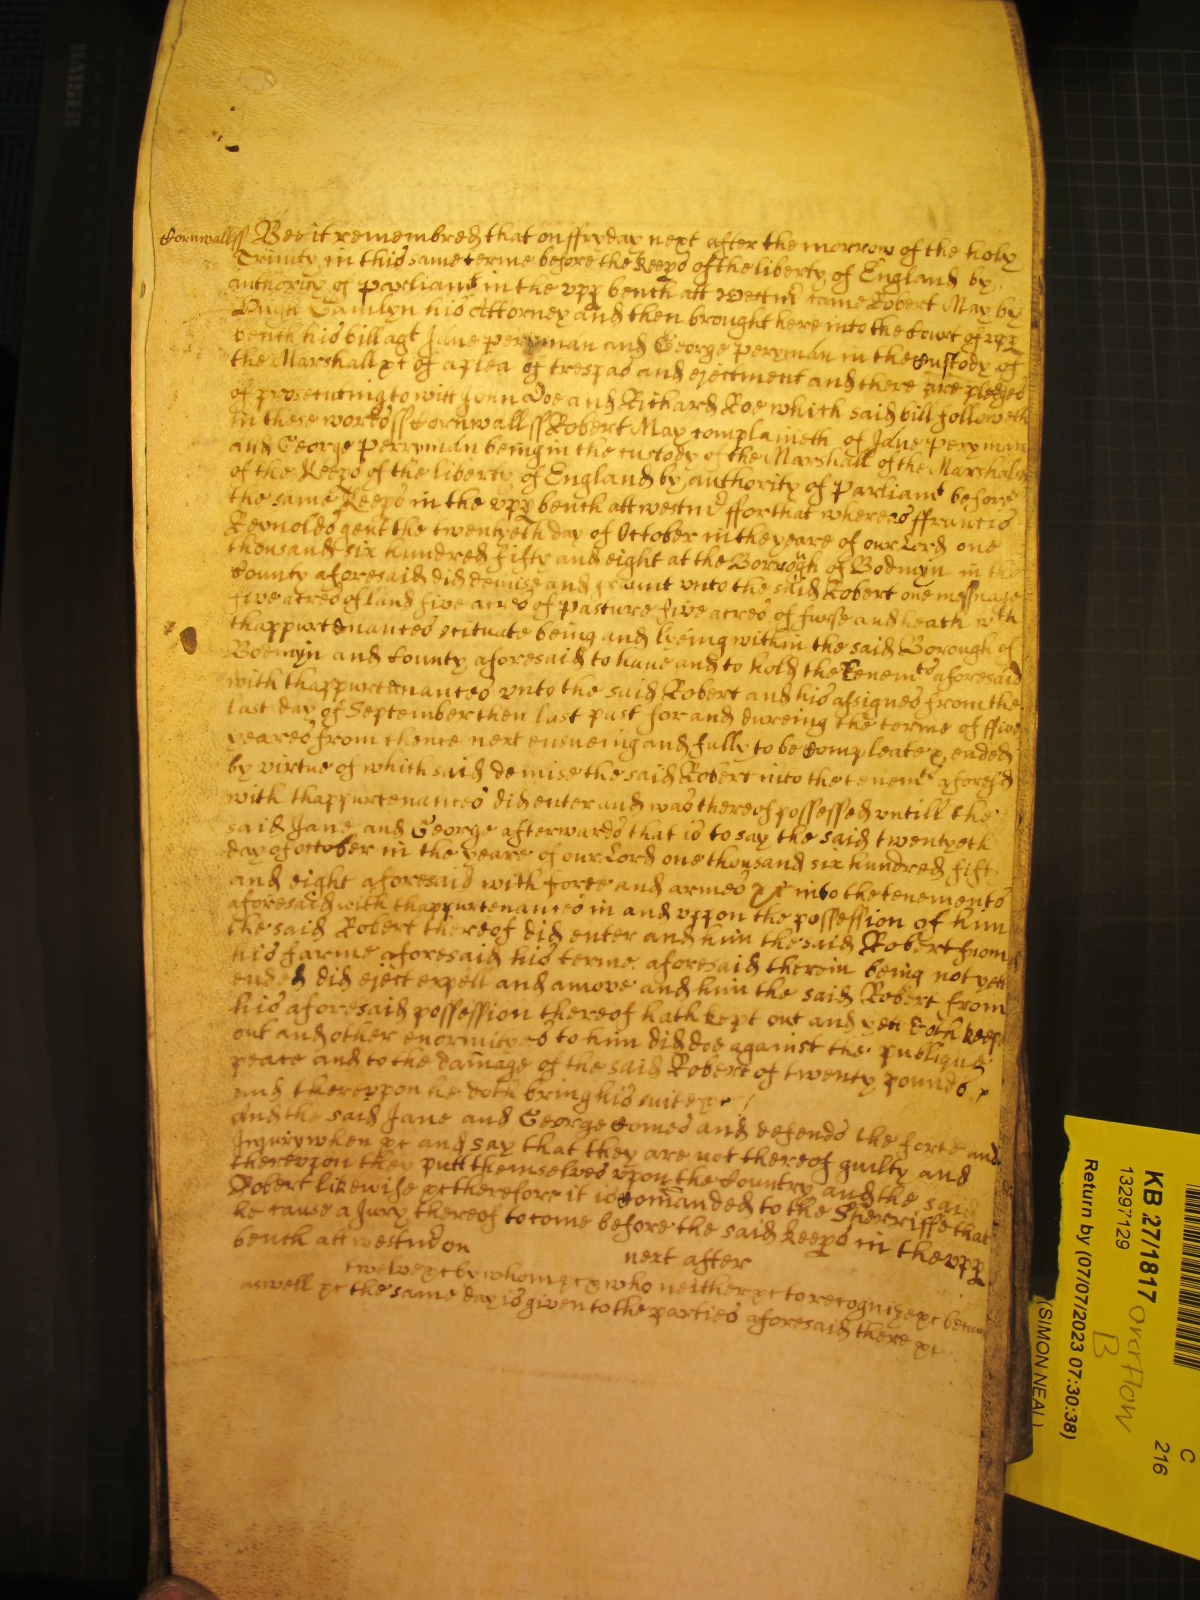 Cornwallss Bee it remembred that on ffryday next after the morrow of the holy
Trinity in this same terme before the keeps of the liberty of England by
authority of Parliamt in the upp bench att westmr came Robert May by
Hugh his Attorney and then brought here into the Court of upp
bench his bill agt Jane Perryman and George Peryman in the Custody of
the Marshall &c of a plea of trespas and ejectment and there are pledges
of prosecuting to witt John Doe and Richard Roe which said bill followeth
in these words ss Cornwall ss Robert May complaineth of Jane Peryman
and George Perryman being in the custody of the Marshall of the Marshals
of the Keeps of the liberty of England by authority of Parliamt before
the same Keeps in the upp bench att westmr ffor that whereas ffrancis
Reynolds gent the twentyeth day of October in the yeare of our Lord one
thousand six hundred fifty and eight at the Borrough of Bodmyn in the
County aforesaid did demise and graunt unto the said Robert one messuage
five acres of land five acres of pasture five acres of furse and heath wth
thappurtenances scituate being and lyeing within the said Borough of
Bodmyn and County aforesaid to have and to hold the tenemts aforesaid
with thappurtenances unto the said Robert and his assignes from the
last day of September then last past for and dureing the terme of ffive
yeares from thence next ensueing and fully to be compleate & ended
by virtue of which said demise the said Robert into the tenemts aforesd
with thappurtenances did enter and was thereof possessed untill the
said Jane and George afterwards that is to say the said twentyeth
day of october in the yeare of our Lord one thousand six hundred fifty
and eight aforesaid with force and armes &c into the tenements
aforesaid with thappurtenances in and uppon the possession of him
the said Robert thereof did enter and him the said Robert from
his farme aforesaid his terme aforesaid therein being not yett
ended did eject expell and amove and him the said Robert from
his aforesaid possession thereof hath kept out and yett doth keep
out and other enormityes to him did doe against the publique
peace and to the damage of the said Robert of twenty pounds &
and thereupon he doth bring his suite &c
And the said Jane and George comes and defends the force and
Injury when &c and say that they are not thereof guilty and
thereupon they putt themselves upon the Country and the said
Robert likewise &c therefore it is comanded to the Sherriffe that
he cause a Jury thereof to come before the said keeps in the upp
bench att westmr on next after
twelve &c by whom &c & who neither &c to recognize &c because
aswell &c the same day is given to the parties aforesaid there &c
KB 27/1817
13297129
Return by (07/07/2023 07:30:38)
(SIMON NEAL)
Overflow
B
C
216
KAISER